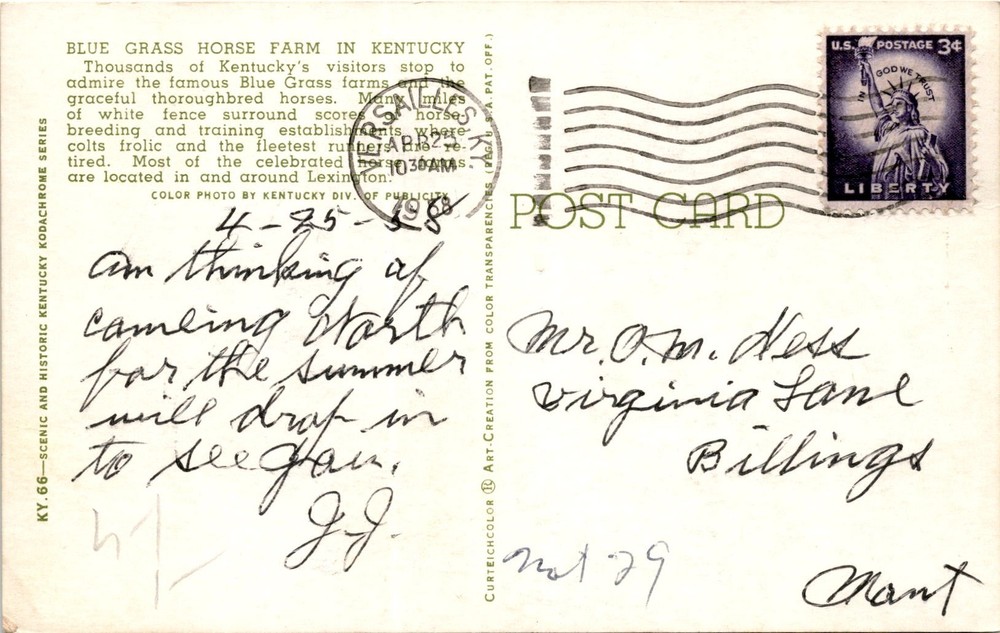 BLUE GRASS HORSE FARM IN KENTUCKY
Thousands of Kentucky's visitors stop to
admire the famous Blue Grass farms and the
graceful thoroughbred horses. Many miles
of white fence surround scores of horse
breeding and training establishments where
colts frolic and the fleetest runners are re-
tired. Most of the celebrated horse farms
are located in and around Lexington.
COLOR PHOTO BY KENTUCKY DIV. OF PUBLICITY
VERSAILLES, KY.
APR 25
10 30 AM
19
4-25-58
am thinking of
comeing North
for the summer
will drop in
to see you.
J.J.
KY. 66—SCENIC AND HISTORIC KENTUCKY KODACHROME SERIES
CURTEICHCOLOR ® ART-CREATION FROM COLOR TRANSPARENCIES (REG. U.S.A. PAT. OFF.)
POST CARD
U.S. POSTAGE 3¢
IN GOD WE TRUST
LIBERTY
Mr. O.M. Hess
Virginia Lane
Billings
Mont
not 29